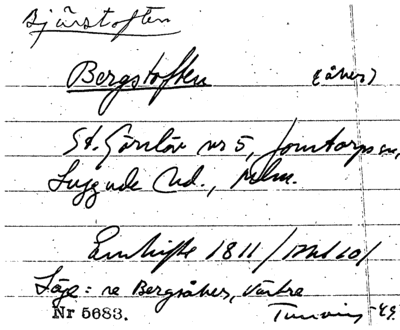 Bjärstoften
Bergstoften (åker)
St. Görslöv nr 5, Jonstorps sn,
Luggude hd., Mlm.
Enskifte 1811 /Akt 10/
Läge: se Bergsåker, Västre
Nr 5683. -49